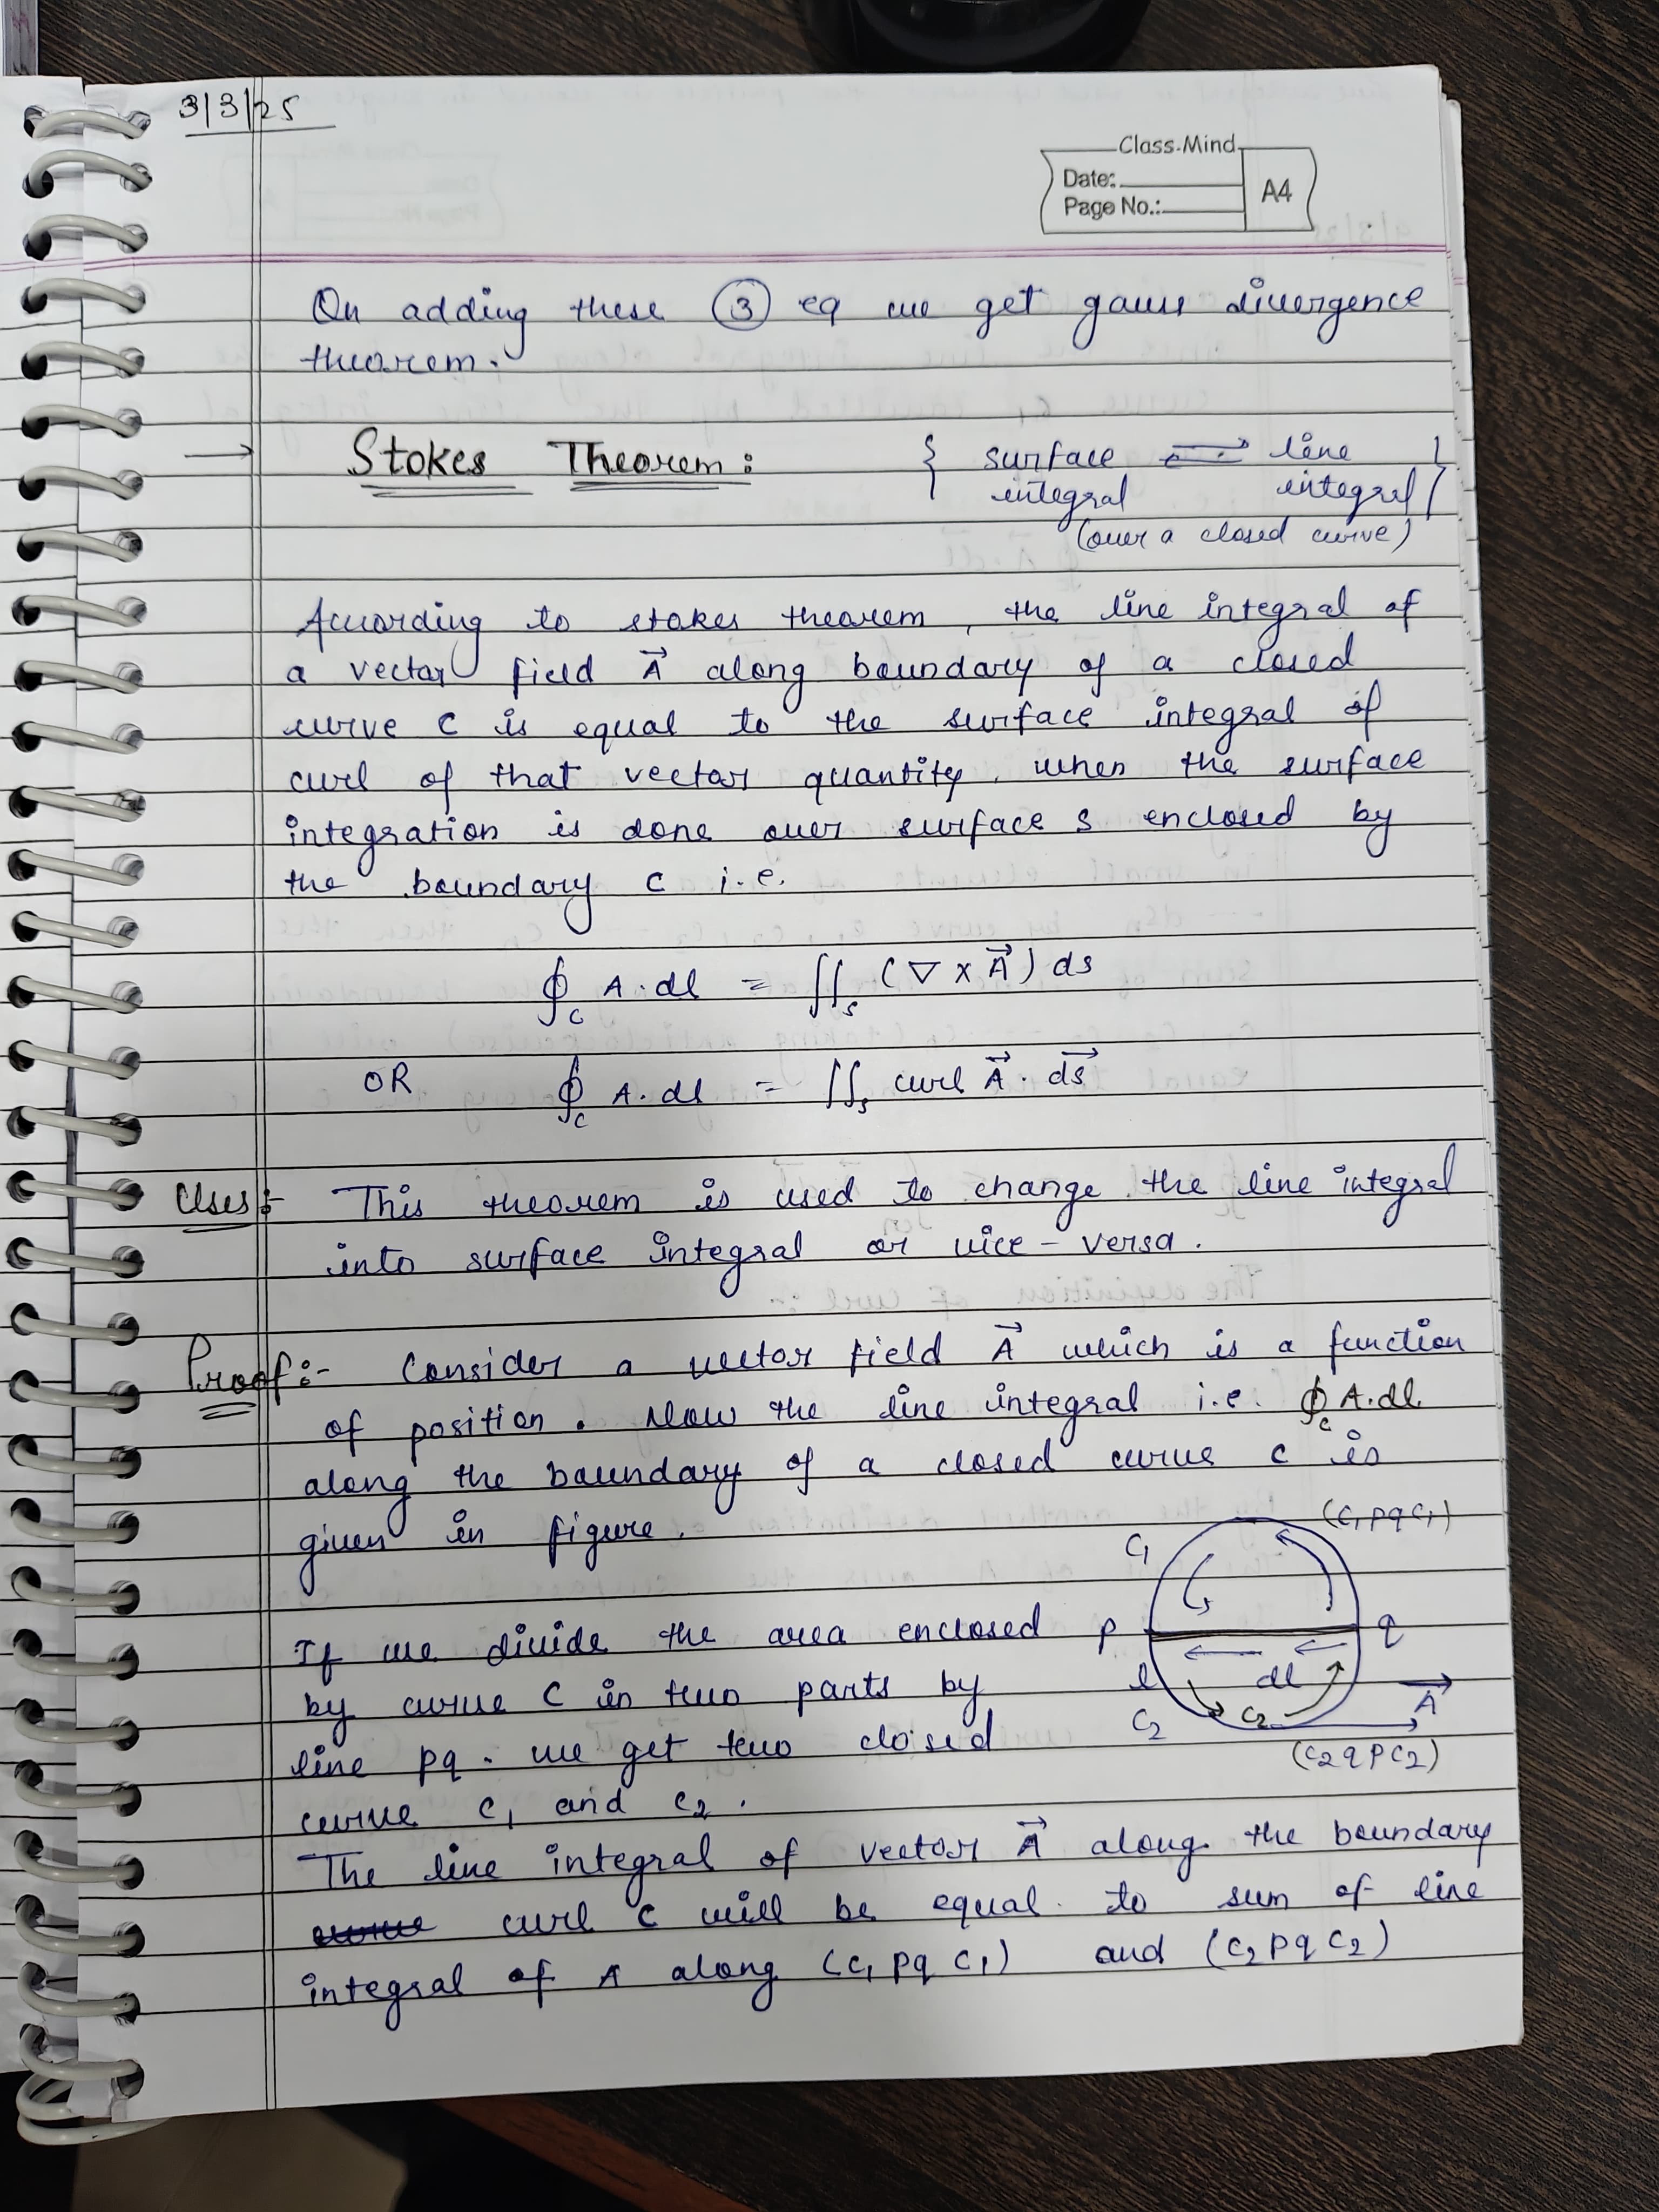 3/3/25
Class-Mind
Date:
Page No.:
A4
On adding these ③ eq we get gauss divergence
theorem.
→ Stokes Theorem : { surface ⇄ line
integral integral }
(over a closed curve)
According to stokes theorem, the line integral of
a vector field A⃗ along boundary of a closed
curve C is equal to the surface integral of
curl of that vector quantity, when the surface
integration is done over surface s enclosed by
the boundary C i.e.
∮c A.dl = ∬s (∇ x A⃗) ds
OR ∮c A.dl = ∬s curl A⃗. ds⃗
Uses:- This theorem is used to change the line integral
into surface integral or vice-versa.
Proof:- Consider a vector field A⃗ which is a function
of position. Now the line integral i.e. ∮c A.dl
along the boundary of a closed curve C is
given in figure.
(C₁ pq C₁)
C₁
If we divide the area enclosed
p q
by curve C in two parts by
l dl A⃗
C₂ C₂
line pq. we get two closed
(C₂ q p C₂)
curve C₁ and C₂.
The line integral of vector A⃗ along the boundary
curl C will be equal to sum of line
integral of A along (C₁ pq C₁) and (C₂ pq C₂)